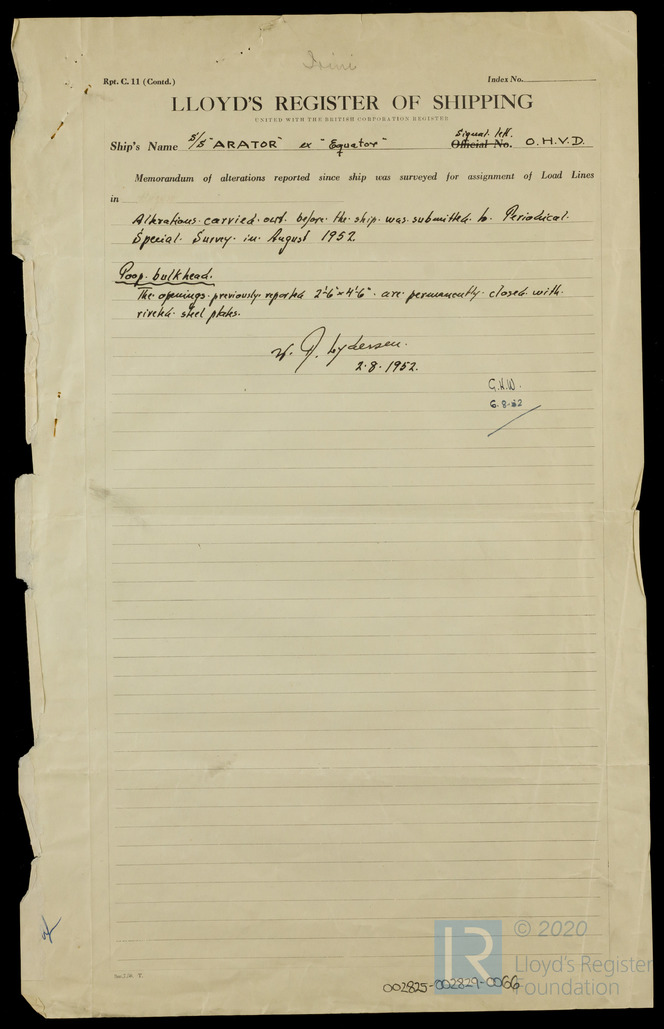 Irini
Rpt. C. 11 (Contd.)
Index No.
LLOYD'S REGISTER OF SHIPPING
UNITED WITH THE BRITISH CORPORATION REGISTER
Signal lett.
Ship's Name S/S "ARATOR" ex "Equator" Official No. O.H.V.D.
Memorandum of alterations reported since ship was surveyed for assignment of Load Lines
in
Alterations carried out before the ship was submitted to Periodical
Special Survey in August 1952.
Poop bulkhead.
The openings previously reported 2'-6" x 4'-6" are permanently closed with
riveted steel plates.
W. J. Lydersen.
2.8.1952.
G.H.W.
6.8.52
002825-002829-0066
© 2020
Lloyd's Register
Foundation
LR